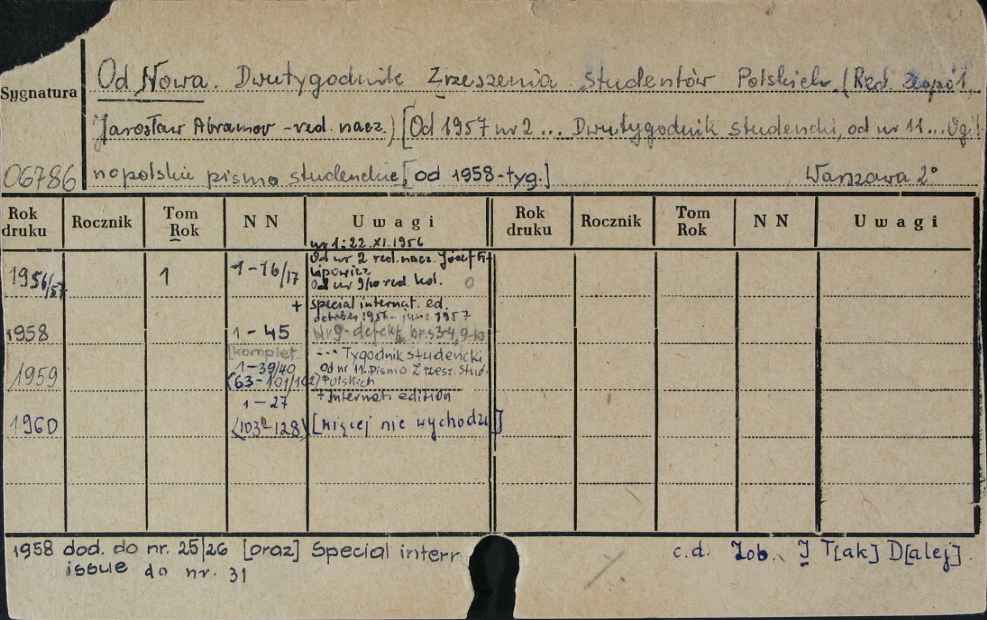 Od Nowa. Dwutygodnik Zrzeszenia studentów Polskich. (Red. zespół,
Sygnatura
Jarosław Abramov - red. nacz.) [Od 1957 nr 2 ... Dwutygodnik studencki, od nr 11 ... Ogól
06786
nopolskie pismo studenckie, [od 1958 - tyg.] Warszawa 2°
Rok druku Rocznik Tom Rok N N Uwagi Rok druku Rocznik Tom Rok N N Uwagi
nr 1: 22.XI.1956
1956/57 1 1-16/17 Od nr 2 red. nacz. Józef
Od nr 9/10 red. kol. 0
+ special internat. ed.
1957
1958 1-45 Nr 9 - defekt
[komplet] --- Tygodnik studencki
1959 1-39/40 Od nr 11. Pismo Zrzesz. Stud.
(63-101/102) Polskich
+ Internat. edition
1-27
1960 (103-128) [więcej nie wychodzi]
1958 dod. do nr. 25/26 [oraz] Special intern.
issue do nr. 31
c.d. Zob. I T[ak] D[alej].